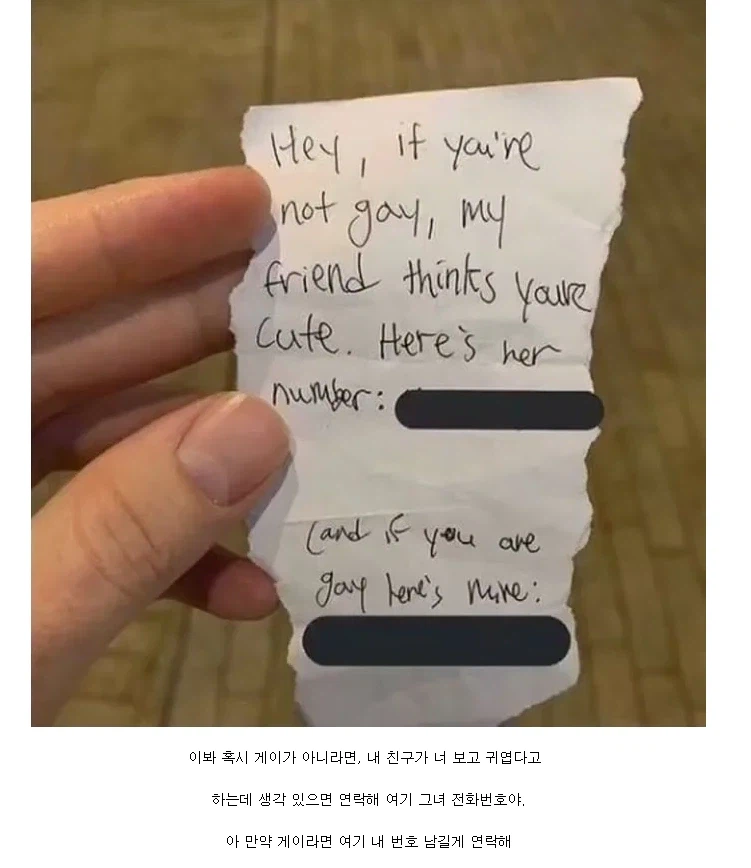 Hey, if you're
not gay, my
friend thinks youre
cute. Here's her
number:
(and if you are
gay here's mine:
이봐 혹시 게이가 아니라면, 내 친구가 너 보고 귀엽다고
하는데 생각 있으면 연락해 여기 그녀 전화번호야.
아 만약 게이라면 여기 내 번호 남길게 연락해